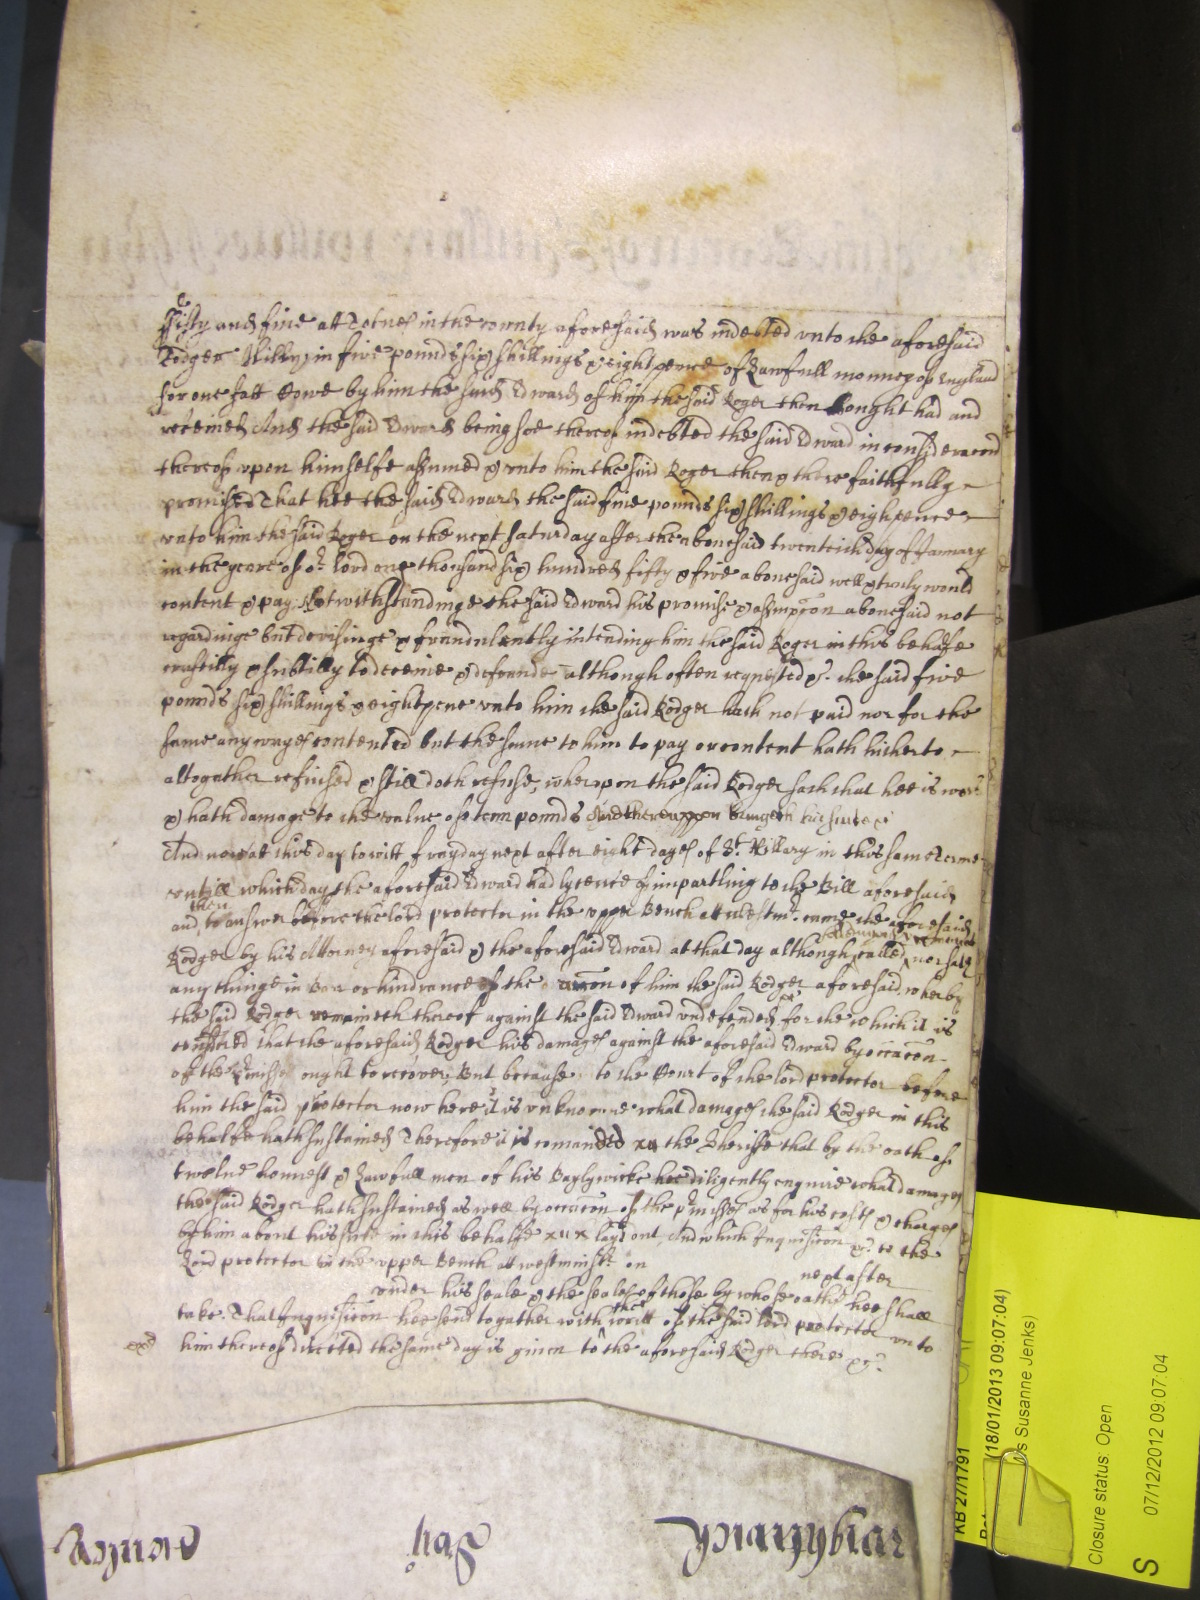 Fifty and five att Totnes in the County aforesaid was indebted vnto the aforesaid
Rodger Hillyn in five pounds six shillings & eight pence of Lawfull monney of England
for one fatt Cowe by him the said Edward of him the said Roger then bought had and
receiued And the said Edward being soe thereof indebted the said Edward in consideracon
thereof vpon himselfe assumed & vnto him the said Roger then & there faithfully
promised That hee the said Edward the said fiue pounds six shillings & eighpence
vnto him the said Roger on the next Saturday after the abouesaid twenteith day of January
in the yeare of or lord one thousand six hundred fifty & five abouesaid well & truly would
content & pay: Notwithstandinge the said Edward his promise & assumpcon abouesaid not
regardinge but devisinge & fraudulently intending him the said Roger in this behalfe
craftilly & subtilly to deceiue & defraude although often requested &c. the said five
pounds six shillings & eightpene vnto him the said Rodger hath not paid nor for the
same any wayes contented but the same to him to pay or content hath hitherto
altogather refuised & still doth refuse, wherupon the said Rodger saith that hee is wors
& hath damage to the value of tenn pounds And thereuppon bringeth his suite &c
And now att this day to witt fryday next after eight dayes of St. Hillary in this same terme
vntill which day the aforesaid Edward had lycence of imparling to the Bill aforesaid
and then to answer before the lord protector in the vpper Bench att westmr. came the aforesaid
Rodger by his Attorney aforesaid & the aforesaid Edward at that day although sollempnly called, nor saith
any thinge in Barr or hindrance of the accon of him the said Rodger aforesaid, wherby
the said Rodger remaineth thereof against the said Edward vndefended &c for the which it is
considered that the aforesaid Rodger his damages against the aforesaid Edward by occacon
of the pmisses ought to recover, But because to the Court of the lord protector before
him the said protector now here it is vnknowne what damages the said Rodger in this
behalfe hath sustained Therefore it is comanded the Sheriffe that by the oath of
twelue honnest & Lawfull men of his Baylywicke hee diligently enquire what damages
the said Rodger hath sustained as well by occacon of the pmisses as for his costs & charges
by him about his suite in this behalfe layd out And which Inquisicon &c. to the
Lord protector in the vpper Bench att westminstr on next after
vnder his seale & the seales of those by whose oathes hee shall
take That Inquisicon hee send togather with the writt of the said lord protector vnto
him thereof directed the same day is giuen to the aforesaid Rodger there &c.
KB 27/1791
(18/01/2013 09:07:04)
Susanne Jenks)
Closure status: Open
07/12/2012 09:07:04
S